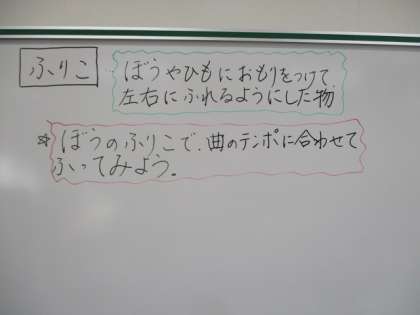 ふりこ
ぼうやひもにおもりをつけて
左右にふれるようにした物
☆ぼうのふりこで、曲のテンポに合わせて
ふってみよう。